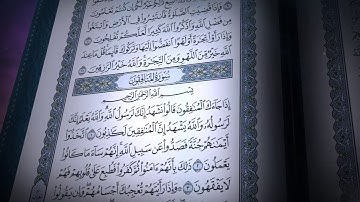 فَإِذَا قُضِيَتِ ٱلصَّلَوٰةُ فَٱنتَشِرُوا۟ فِى ٱلْأَرْضِ وَٱبْتَغُوا۟
مِن فَضْلِ ٱللَّهِ وَٱذْكُرُوا۟ ٱللَّهَ كَثِيرًا لَّعَلَّكُمْ تُفْلِحُونَ ١٠
وَإِذَا رَأَوْا۟ تِجَٰرَةً أَوْ لَهْوًا ٱنفَضُّوٓا۟ إِلَيْهَا وَتَرَكُوكَ قَآئِمًا قُلْ مَا عِندَ
ٱللَّهِ خَيْرٌ مِّنَ ٱللَّهْوِ وَمِنَ ٱلتِّجَٰرَةِ وَٱللَّهُ خَيْرُ ٱلرَّٰزِقِينَ ١١
سُورَةُ المُنَافِقُونَ
بِسْمِ ٱللَّهِ ٱلرَّحْمَٰنِ ٱلرَّحِيمِ
إِذَا جَآءَكَ ٱلْمُنَٰفِقُونَ قَالُوا۟ نَشْهَدُ إِنَّكَ لَرَسُولُ ٱللَّهِ وَٱللَّهُ يَعْلَمُ إِنَّكَ
لَرَسُولُهُۥ وَٱللَّهُ يَشْهَدُ إِنَّ ٱلْمُنَٰفِقِينَ لَكَٰذِبُونَ ١ ٱتَّخَذُوٓا۟
أَيْمَٰنَهُمْ جُنَّةً فَصَدُّوا۟ عَن سَبِيلِ ٱللَّهِ إِنَّهُمْ سَآءَ مَا كَانُوا۟
يَعْمَلُونَ ٢ ذَٰلِكَ بِأَنَّهُمْ ءَامَنُوا۟ ثُمَّ كَفَرُوا۟ فَطُبِعَ عَلَىٰ قُلُوبِهِمْ فَهُمْ
لَا يَفْقَهُونَ ٣ وَإِذَا رَأَيْتَهُمْ تُعْجِبُكَ أَجْسَامُهُمْ وَإِن يَقُولُوا۟